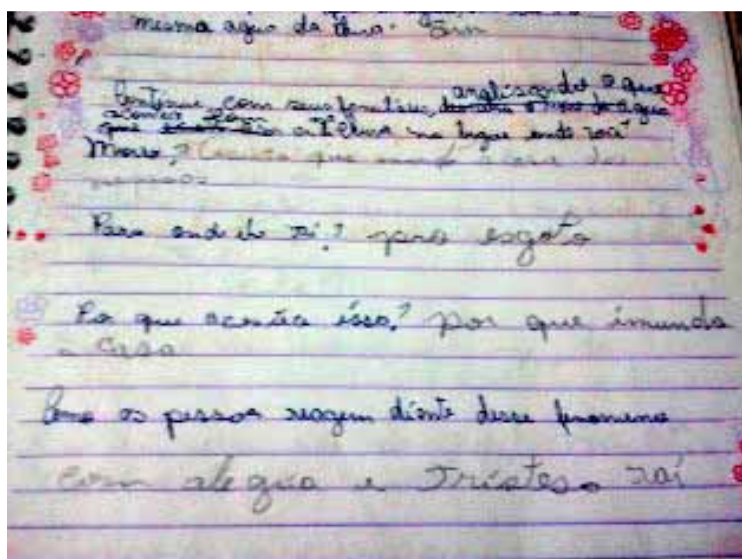 mesma agua da Chuva. Sim
Continue com seus familiares, analisando o que
acontece com a Chuva no lugar onde você
Mora? que a casa das
pessoas
Para onde ela vai? para esgoto
Por que acontece isso? por que imunda
a casa
Como as pessoas reagem diante desse fenomeno
com alegria e Tristesa vai